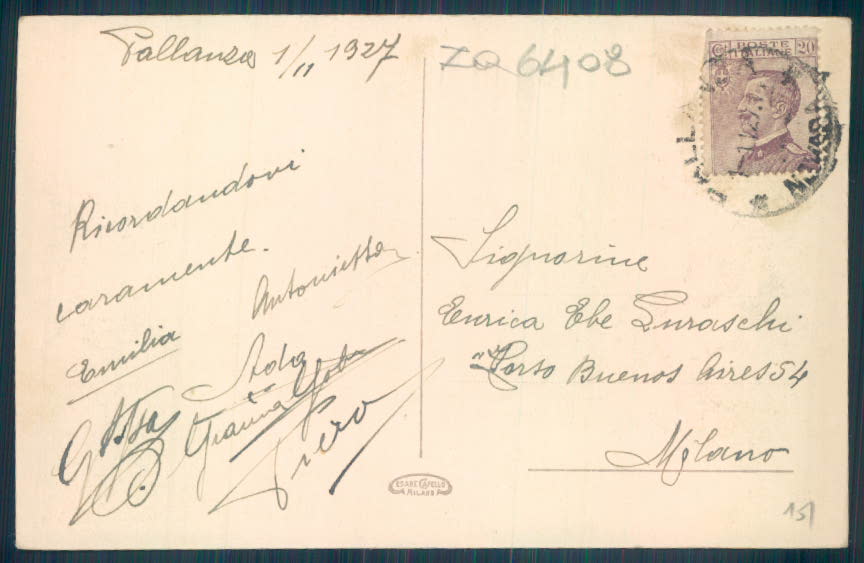 Pallanza 1/11 1927
ZQ 6408
POSTE
ITALIANE
20
PALLANZA
NOVARA
Ricordandovi
caramente.
Antonietta
Emilia
Ada
Piero
Signorine
Enrica Ebe Luraschi
Corso Buenos Aires 54
Milano
CESARE CAPELLO
MILANO
151